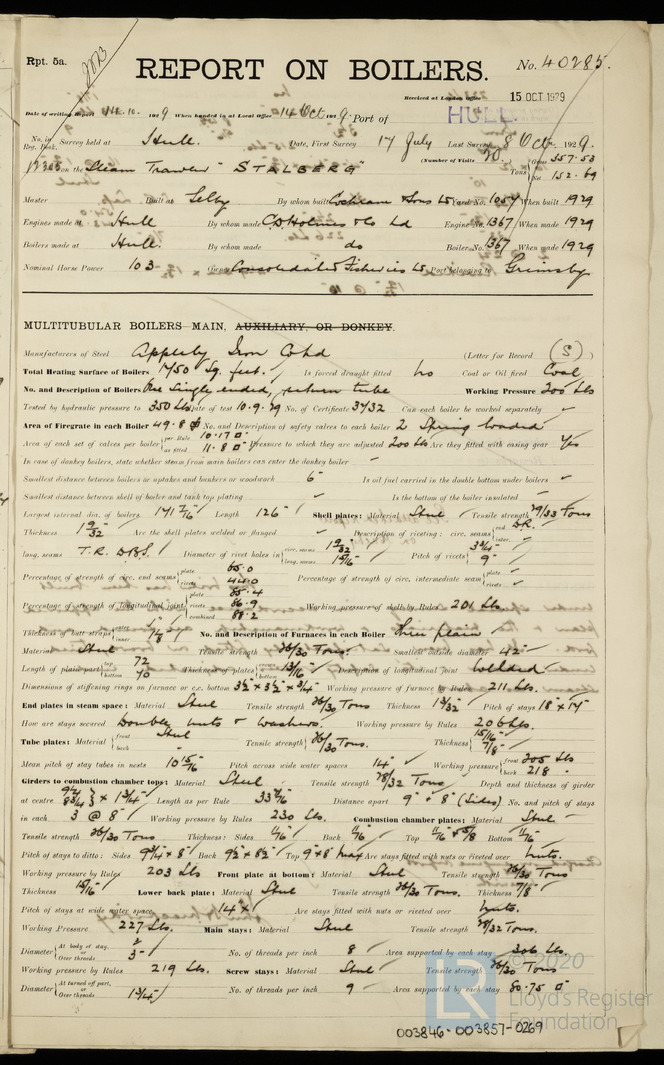 Rpt. 5a.
REPORT ON BOILERS.
No. 40285.
Received at London Office 15 OCT 1929
Date of writing Report 14.10. 1929 When handed in at Local Office 14 Oct 1929 Port of HULL.
No. in Reg. Book. Survey held at Hull. Date, First Survey 17 July Last Survey 8 Oct. 1929.
on the Steam Trawler "STALBERG" (Number of Visits 20.) Tons Gross 357.53 Net 152.69
Master Built at Selby By whom built Cochrane & Sons Ld Yard No. 1057 When built 1929
Engines made at Hull By whom made C.D. Holmes & Co Ld Engine No. 1367 When made 1929
Boilers made at Hull. By whom made do Boiler No. 1367 When made 1929
Nominal Horse Power 103 Owners Consolidated Fisheries Ld Port belonging to Grimsby
MULTITUBULAR BOILERS MAIN, AUXILIARY, OR DONKEY.
Manufacturers of Steel Appleby Iron Co Ltd (Letter for Record (S))
Total Heating Surface of Boilers 1750 Sq. feet. Is forced draught fitted no Coal or Oil fired Coal
No. and Description of Boilers One single ended, return tube Working Pressure 200 Lbs
Tested by hydraulic pressure to 350 Lbs Date of test 10.9.29 No. of Certificate 3732 Can each boiler be worked separately
Area of Firegrate in each Boiler 49.8 No. and Description of safety valves to each boiler 2 Spring loaded
Area of each set of valves per boiler per Rule 10.17 as fitted 11.8 Pressure to which they are adjusted 200 Lbs Are they fitted with easing gear Yes
In case of donkey boilers, state whether steam from main boilers can enter the donkey boiler
Smallest distance between boilers or uptakes and bunkers or woodwork 6" Is oil fuel carried in the double bottom under boilers
Smallest distance between shell of boiler and tank top plating Is the bottom of the boiler insulated
Largest internal dia. of boilers 171 7/16 Length 126" Shell plates: Material Steel Tensile strength 29/33 Tons
Thickness 1 9/32 Are the shell plates welded or flanged Description of riveting: circ. seams end D.R. inter.
long. seams T.R. D.B.S. Diameter of rivet holes in circ. seams 1 9/32 long. seams 1 5/16 Pitch of rivets 3 3/4 9"
Percentage of strength of circ. end seams plate 65.0 rivets 44.0 Percentage of strength of circ. intermediate seam plate rivets
Percentage of strength of longitudinal joint plate 85.4 rivets 86.9 combined 88.2 Working pressure of shell by Rules 201 Lbs
Thickness of butt straps outer inner 7/8 No. and Description of Furnaces in each Boiler Three plain
Material Steel Tensile strength 26/30 Tons. Smallest outside diameter 42"
Length of plain part top 72 bottom 70 Thickness of plates crown bottom 13/16 Description of longitudinal joint Welded
Dimensions of stiffening rings on furnace or c.c. bottom 3 1/2 x 3 1/2 x 3/4 Working pressure of furnace by Rules 211 Lbs.
End plates in steam space: Material Steel Tensile strength 26/30 Tons Thickness 1 3/32 Pitch of stays 18 x 17
How are stays secured Double nuts & Washers. Working pressure by Rules 206 Lbs.
Tube plates: Material front back Steel Tensile strength 26/30 Tons. Thickness 15/16 7/8
Mean pitch of stay tubes in nests 10 15/16 Pitch across wide water spaces 14" Working pressure front 205 Lbs back 218
Girders to combustion chamber tops: Material Steel Tensile strength 28/32 Tons Depth and thickness of girder
at centre 8 3/4 x 1 3/4 Length as per Rule Distance apart 9" & 8" (Sides) No. and pitch of stays
in each 3 @ 8" Working pressure by Rules 230 Lbs. Combustion chamber plates: Material Steel
Tensile strength 26/30 Tons Thickness: Sides Back Top Bottom
Pitch of stays to ditto: Sides 9 1/4 x 8 Back 9 1/2 x 8 1/2 Top 9 x 8 max Are stays fitted with nuts or riveted over nuts.
Working pressure by Rules 203 Lbs Front plate at bottom: Material Steel Tensile strength 26/30 Tons
Thickness 15/16 Lower back plate: Material Steel Tensile strength 26/30 Tons. Thickness 7/8
Pitch of stays at wide water space 14" x Are stays fitted with nuts or riveted over nuts.
Working Pressure 227 Lbs. Main stays: Material Steel Tensile strength 28/32 Tons.
Diameter At body of stay, or Over threads 3" No. of threads per inch 8 Area supported by each stay 306
Working pressure by Rules 219 Lbs. Screw stays: Material Steel Tensile strength 26/30 Tons
Diameter At turned off part, or Over threads 1 3/4 No. of threads per inch 9 Area supported by each stay 80.75
© 2020
LR
Lloyd's Register
Foundation
003846-003857-0269